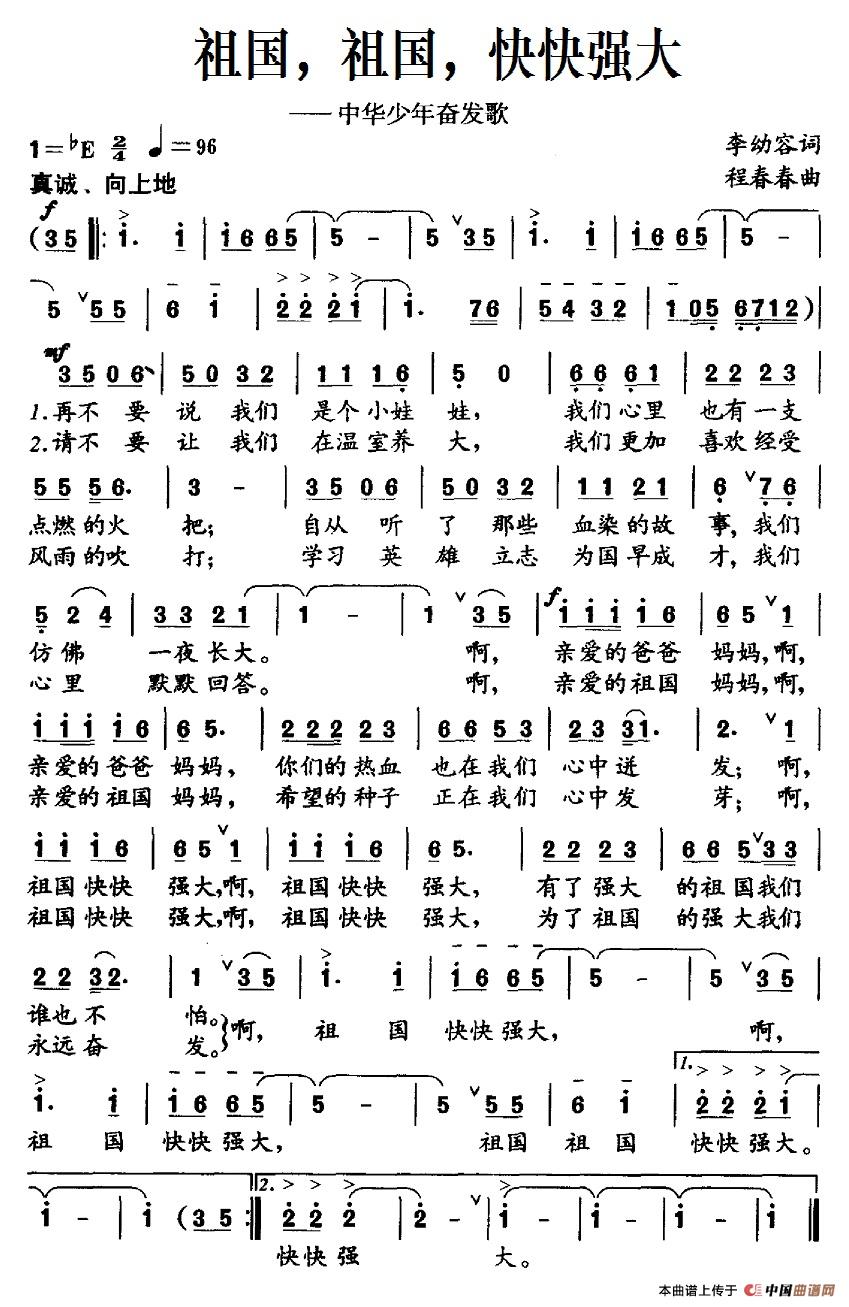 祖国，祖国，快快强大
——中华少年奋发歌
1=♭E 2/4 ♩=96
李幼容词
真诚、向上地
程春春曲
f
(3 5 ‖: i. i | i 6 6 5 | 5 - | 5 ∨ 3 5 | i. i | i 6 6 5 | 5 - |
5 ∨ 5 5 | 6 i | 2 2 2 i | i. 7 6 | 5 4 3 2 | 1 0 5 6 7 1 2 ) |
mf
3 5 0 6 | 5 0 3 2 | 1 1 1 6 | 5 0 | 6 6 6 1 | 2 2 2 3 |
1.再不 要 说 我们 是个小娃 娃， 我们心里 也有一支
2.请不 要 让 我们 在温室养 大， 我们更加 喜欢经受
5 5 5 6. | 3 - | 3 5 0 6 | 5 0 3 2 | 1 1 2 1 | 6 ∨ 7 6 |
点燃的火 把； 自从 听 了 那些 血染的故 事，我们
风雨的吹 打； 学习 英 雄 立志 为国早成 才，我们
f
5 2 4 | 3 3 2 1 | 1 - | 1 ∨ 3 5 | i i i i 6 | 6 5 ∨ 1 |
仿佛 一夜长大。 啊， 亲爱的爸爸 妈妈，啊，
心里 默默回答。 啊， 亲爱的祖国 妈妈，啊，
i i i i 6 | 6 5. | 2 2 2 2 3 | 6 6 5 3 | 2 3 3 1. | 2. ∨ 1 |
亲爱的爸爸 妈妈， 你们的热血 也在我们 心中迸 发；啊，
亲爱的祖国 妈妈， 希望的种子 正在我们 心中发 芽；啊，
i i i 6 | 6 5 ∨ 1 | i i i 6 | 6 5. | 2 2 2 3 | 6 6 5 ∨ 3 3 |
祖国快快 强大，啊， 祖国快快 强大， 有了强大 的祖国我们
祖国快快 强大，啊， 祖国快快 强大， 为了祖国 的强大我们
2 2 3 2. | 1 ∨ 3 5 | i. i | i 6 6 5 | 5 - | 5 ∨ 3 5 |
谁也不 怕。}啊， 祖 国 快快强大， 啊，
永远奋 发。
1.
i. i | i 6 6 5 | 5 - | 5 ∨ 5 5 | 6 i | 2 2 2 i |
祖 国 快快强大， 祖国 祖 国 快快强大。
2.
i - | i (3 5 :‖ 2 2 2 | 2 - ∨ | i - | i - | i 0 ‖
快快强 大。
本曲谱上传于 中国曲谱网